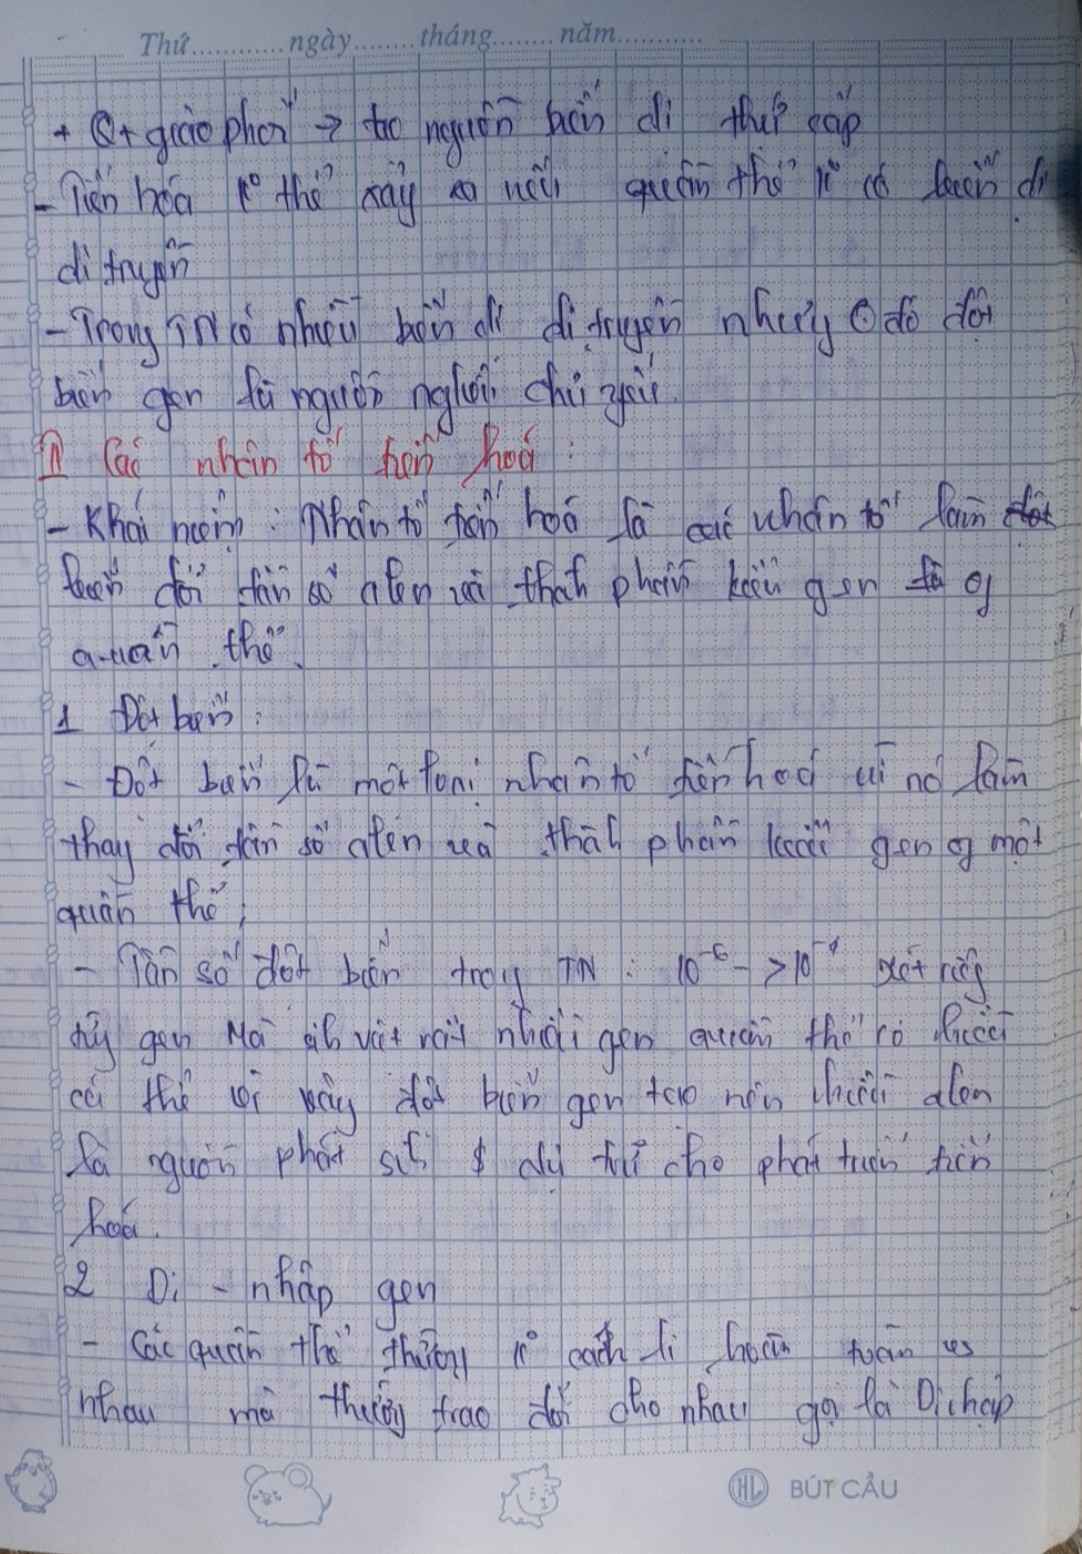 Thứ............ngày........tháng........năm...........
+ Q+ giao phối → tạo nguồn biến dị thứ cấp
- Tiến hóa k° thể xảy ra nếu quần thể k° có biến dị
di truyền
- Trong TN có nhiều biến dị di truyền nhưng đó đột
biến gen là nguồn nguyên chủ yếu.
II Các nhân tố tiến hoá :
- Khái niệm : Nhân tố tiến hoá là các nhân tố làm
biến đổi tần số alen và thành phần kiểu gen of
quần thể.
1 Đột biến :
- Đột biến là một loại nhân tố tiến hoá vì nó làm
thay đổi tần số alen và thành phần kiểu gen of một
quần thể,
- Tần số đột biến trong TN : 10⁻⁶ -> 10⁻⁴ xét riêng
từng gen mà sinh vật rất nhiều gen quần thể có nhiều
cá thể vì vậy đột biến gen tạo nên nhiều alen
là nguồn phát sinh $ dự trữ cho phát triển tiến
hoá.
2 Di - nhập gen
- Các quần thể thường k° cách li hoàn toàn vs
nhau mà thường trao đổi cho nhau gọi là Di nhập
HL BÚT CẢU